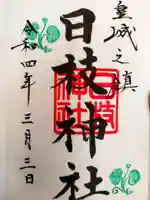 皇城之鎮
日枝神社
日枝神社
令和四年三月三日